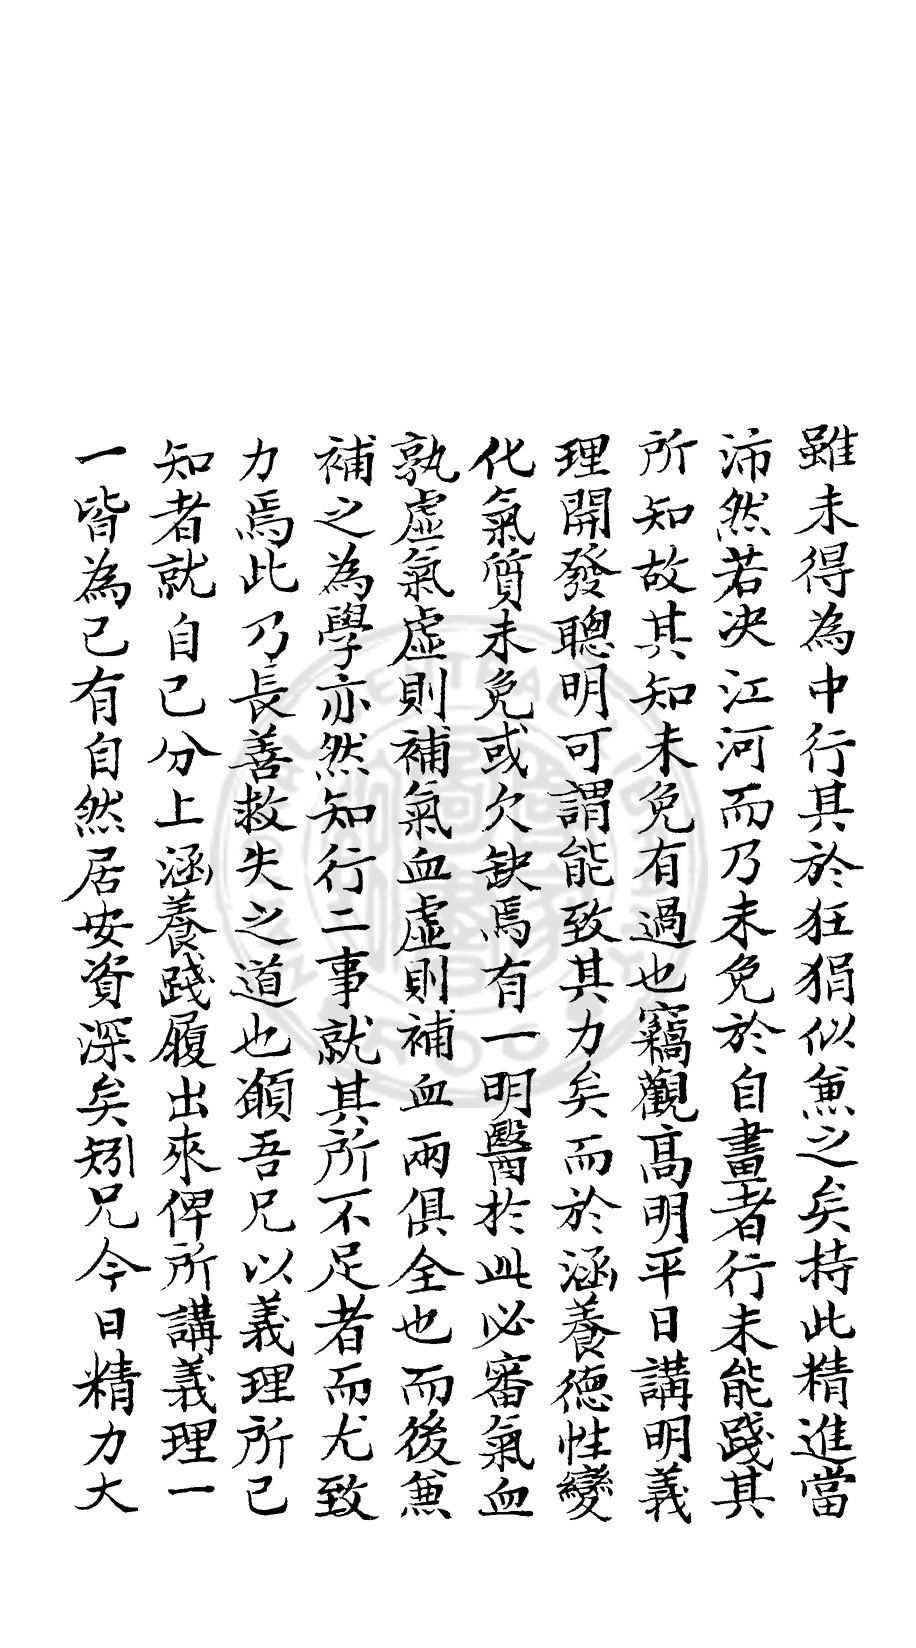 雖未得為中行其於狂狷似兼之矣持此精進當
沛然若决江河而乃未免於自畫者行未能踐其
所知故其知未免有過也竊觀髙明平日講明義
理開發聰明可謂能致其力矣而於涵養徳性變
化氣質未免或欠缺焉有一明醫於此必審氣血
孰虛氣虛則補氣血虛則補血兩俱全也而後兼
補之為學亦然知行二事就其所不足者而尤致
力焉此乃長善救失之道也願吾兄以義理所已
知者就自己分上涵養踐履出來俾所講義理一
一皆為己有自然居安資深矣矧兄今日精力大